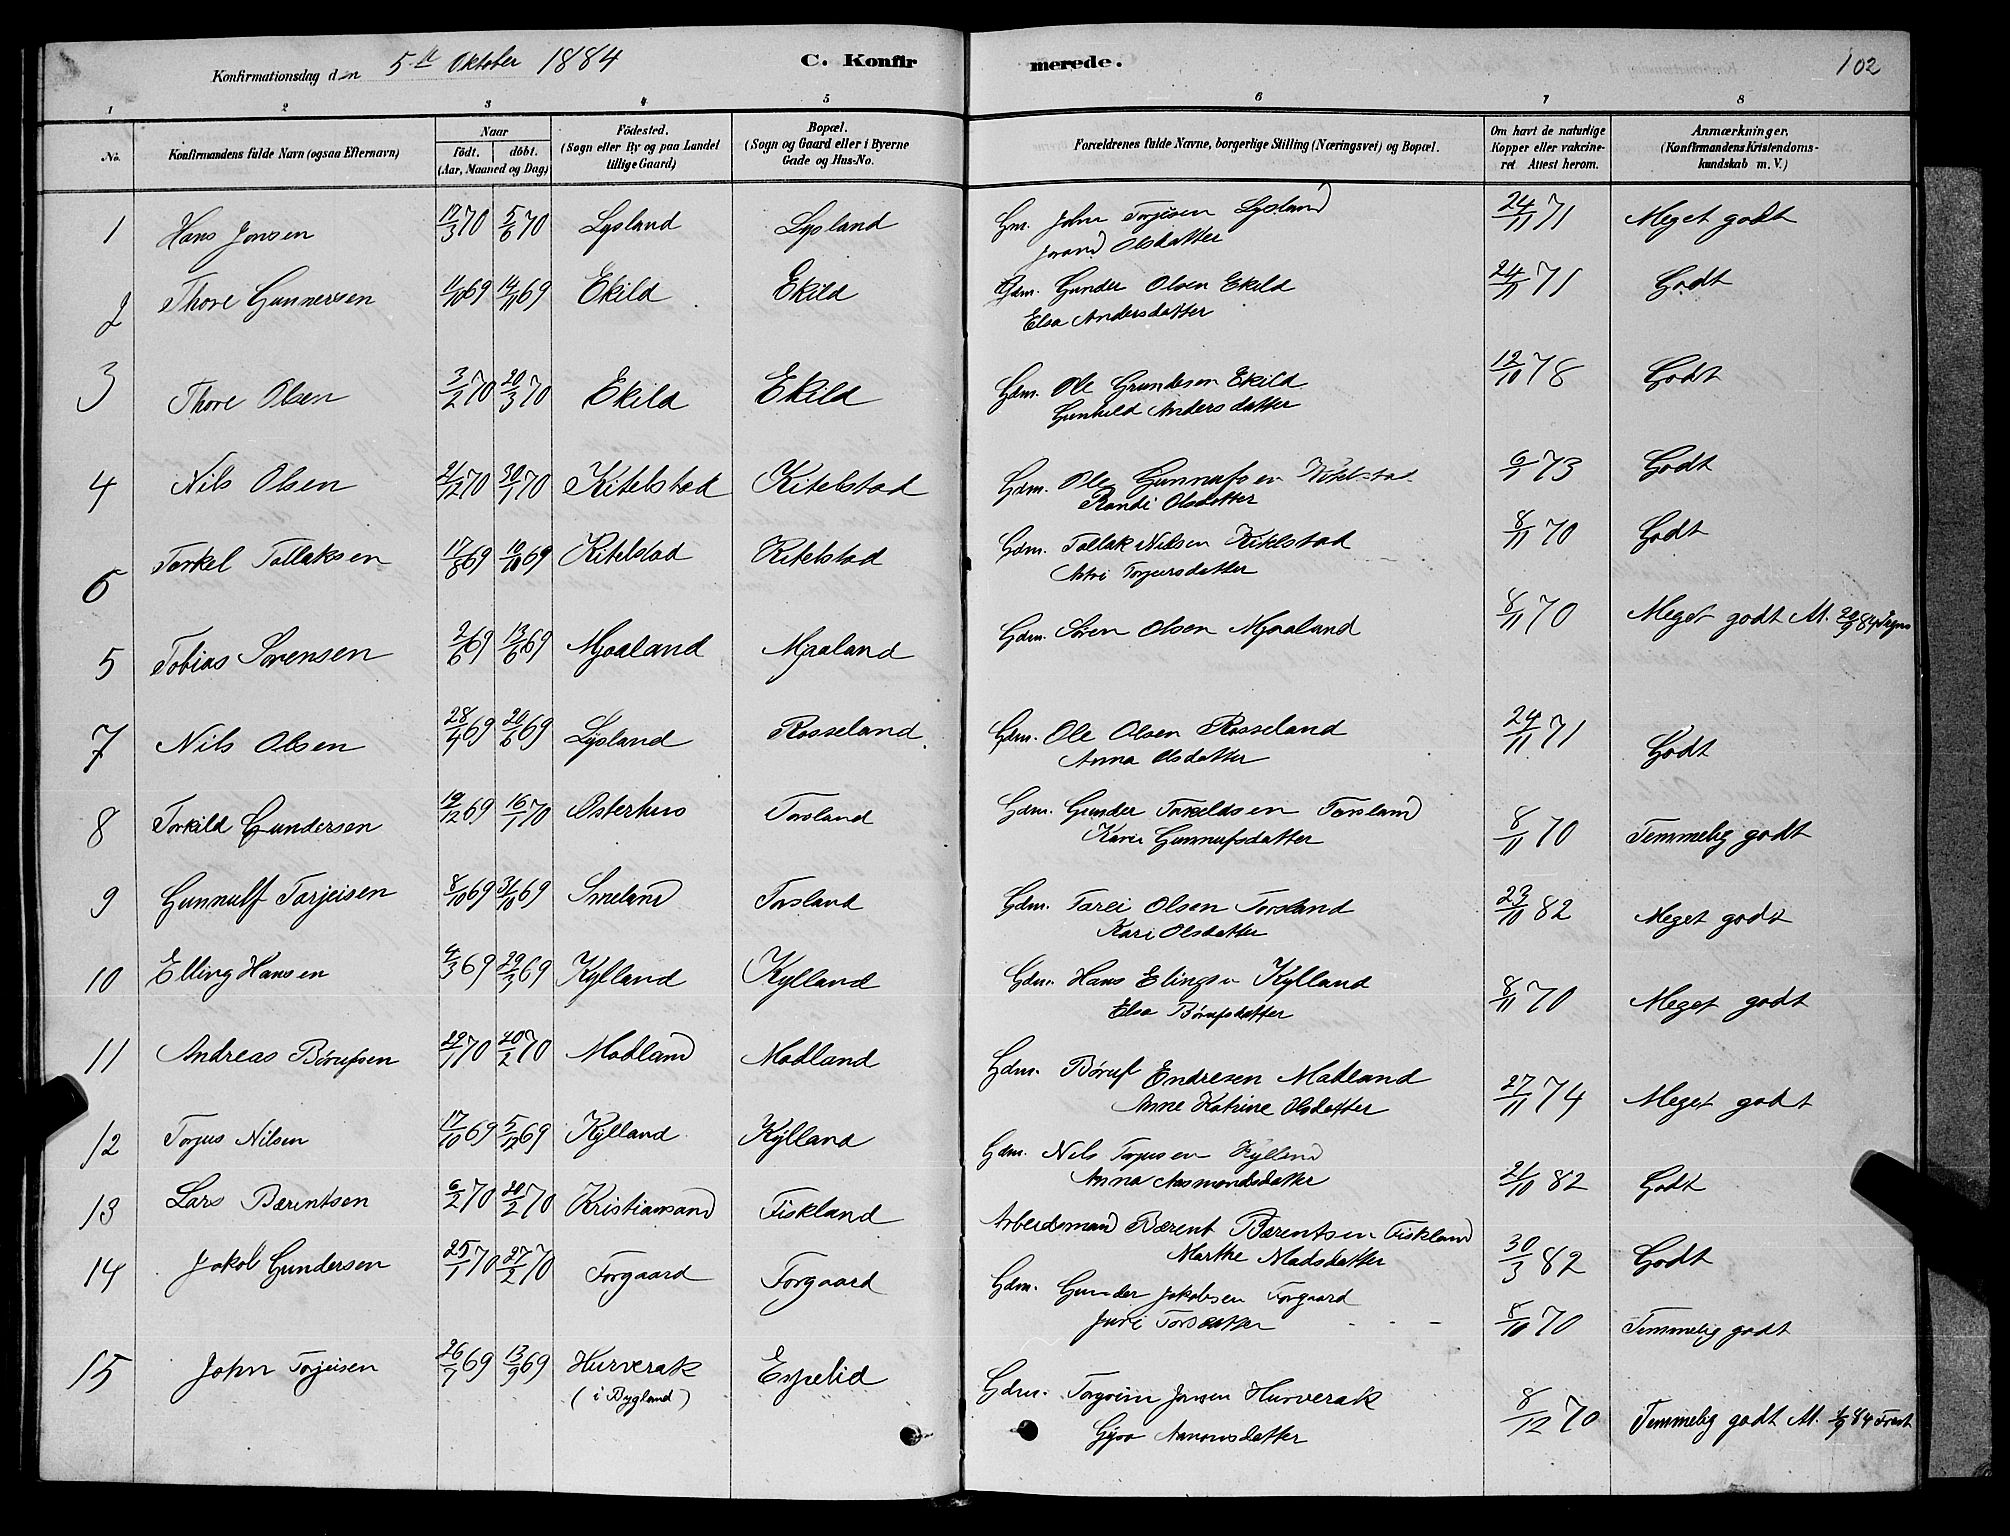 Konfirmationsdag den 5te Oktober 1884
C. Konfir
merede.
102
1 2 3 4 5 6 7 8
No. Konfirmandens fulde Navn (ogsaa Efternavn) Naar födt. döbt. (Aar, Maaned og Dag) Födested. (Sogn eller By og paa Landet tillige Gaard) Bopæl. (Sogn og Gaard eller i Byerne Gade og Hus-No. Forældrenes fulde Navne, borgerlige Stilling (Næringsvei) og Bopæl. Om havt de naturlige Kopper eller vakcineret Attest herom. Anmærkninger. (Konfirmandens Kristendomskundskab m. V.)
1 Hans Jonsen 17/3 70 5/6 70 Lysland Lysland Gm. John Torjusen Lysland 24/11 71 Meget godt
Jorand Olsdatter
2 Thore Gunnersen 11/10 69 14/11 69 Ekild Ekild Gdm. Gunder Olsen Ekild 24/11 71 Godt
Elsa Andersdatter
3 Thore Olsen 3/2 70 20/3 70 Ekild Ekild Gdm. Ole Grundesen Ekild 12/10 78 Godt
Gunhild Andersdatter
4 Nils Olsen 21/12 70 30/1 70 Kitelstad Kitelstad Gdm. Ole Gunnufsen Kitelstad 6/1 73 Godt
Randi Olsdatter
6 Torkel Tallaksen 17/8 69 10/10 69 Kitelstad Kitelstad Gdm. Tallak Nilsen Kitelstad 8/11 70 Godt
Torjusdatter
5 Tobias Sørensen 2/6 69 13/6 69 Mjaaland Mjaaland Gdm. Søren Olsen Mjaaland 8/11 70 Meget godt M. 22/9 84
7 Nils Olsen 28/4 69 20/6 69 Lysland Rosseland Gdm. Ole Olsen Rosseland 24/11 71 Godt
Anna Olsdatter
8 Torkild Gundersen 19/12 69 16/1 70 Østerhus Torsland Gdm. Gunder Torkeldsen Torsland 8/11 70 Temmelig godt
Kari Gunnufsdatter
9 Gunnulf Tarjeisen 8/10 69 31/10 69 Smeland Torsland Gdm. Tarei Olsen Torsland 23/10 82 Meget godt
Kari Olsdatter
10 Elling Hansen 4/3 69 29/3 69 Kylland Kylland Gdm. Hans Elingsen Kylland 8/11 70 Meget godt
Elsa Børufsdatter
11 Andreas Børufsen 29/1 70 20/2 70 Madland Madland Gdm. Børuf Endresen Madland 27/11 74 Meget godt
Anne Katrine Olsdatter
12 Torjus Nilsen 17/10 69 5/12 69 Kylland Kylland Gdm. Nils Torjusen Kylland 21/10 82 Godt
Anna Aasmundsdatter
13 Lars Bærentsen 6/2 70 20/2 70 Kristiansand Fiskland Arbeidsmand Bærent Bærentsen Fiskland 30/3 82 Godt
Marthe Madsdatter
14 Jakob Gundersen 25/1 70 27/2 70 Forgaard Forgaard Gdm. Gunder Jakobsen Forgaard 8/10 70 Temmelig godt
Juri Torsdatter
15 John Torjeisen 26/7 69 13/9 69 Hurverak Espelid Gdm. Jonsen Hurverak 8/12 70 Temmelig godt M. 84
(i Bygland) Gyro Aanonsdatter